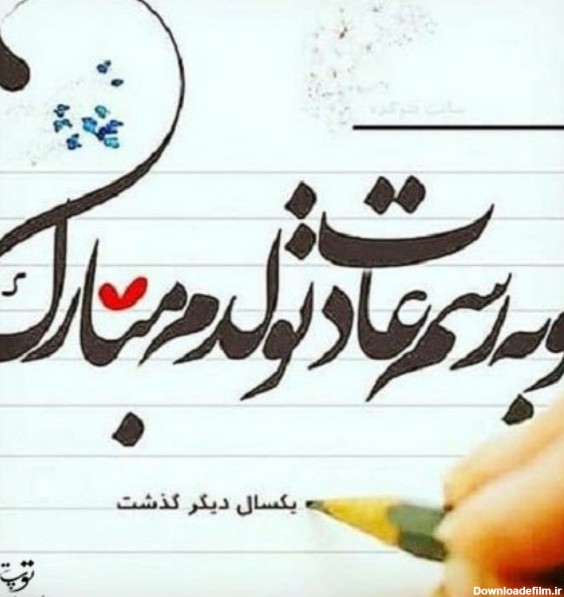 سایت تنوکده
و به رسم عادت تولدم مبارک
یکسال دیگر گذشت
Downloadefilm.ir